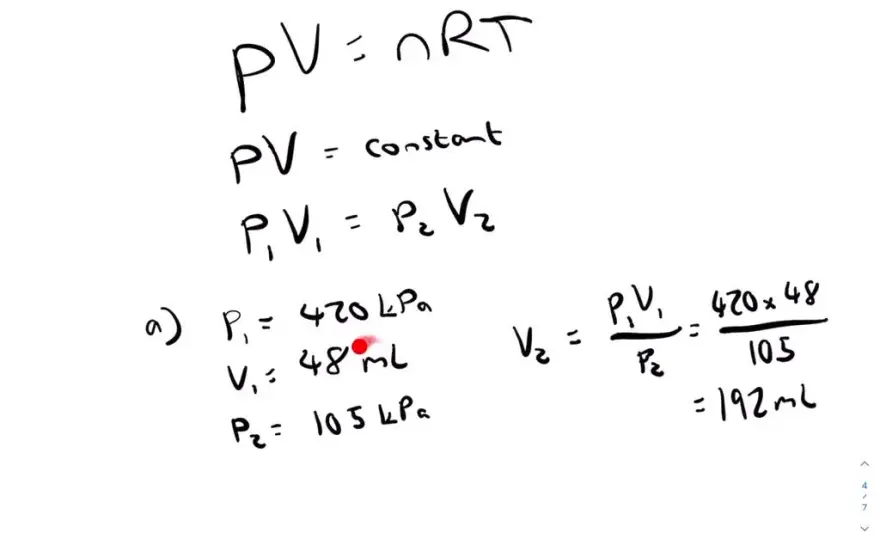 PV = nRT
PV = constant
P₁V₁ = P₂V₂
a) P₁ = 420 kPa
V₁ = 48 mL
P₂ = 105 kPa
V₂ = P₁V₁/P₂ = 420 × 48/105
= 192 mL
4
/
7